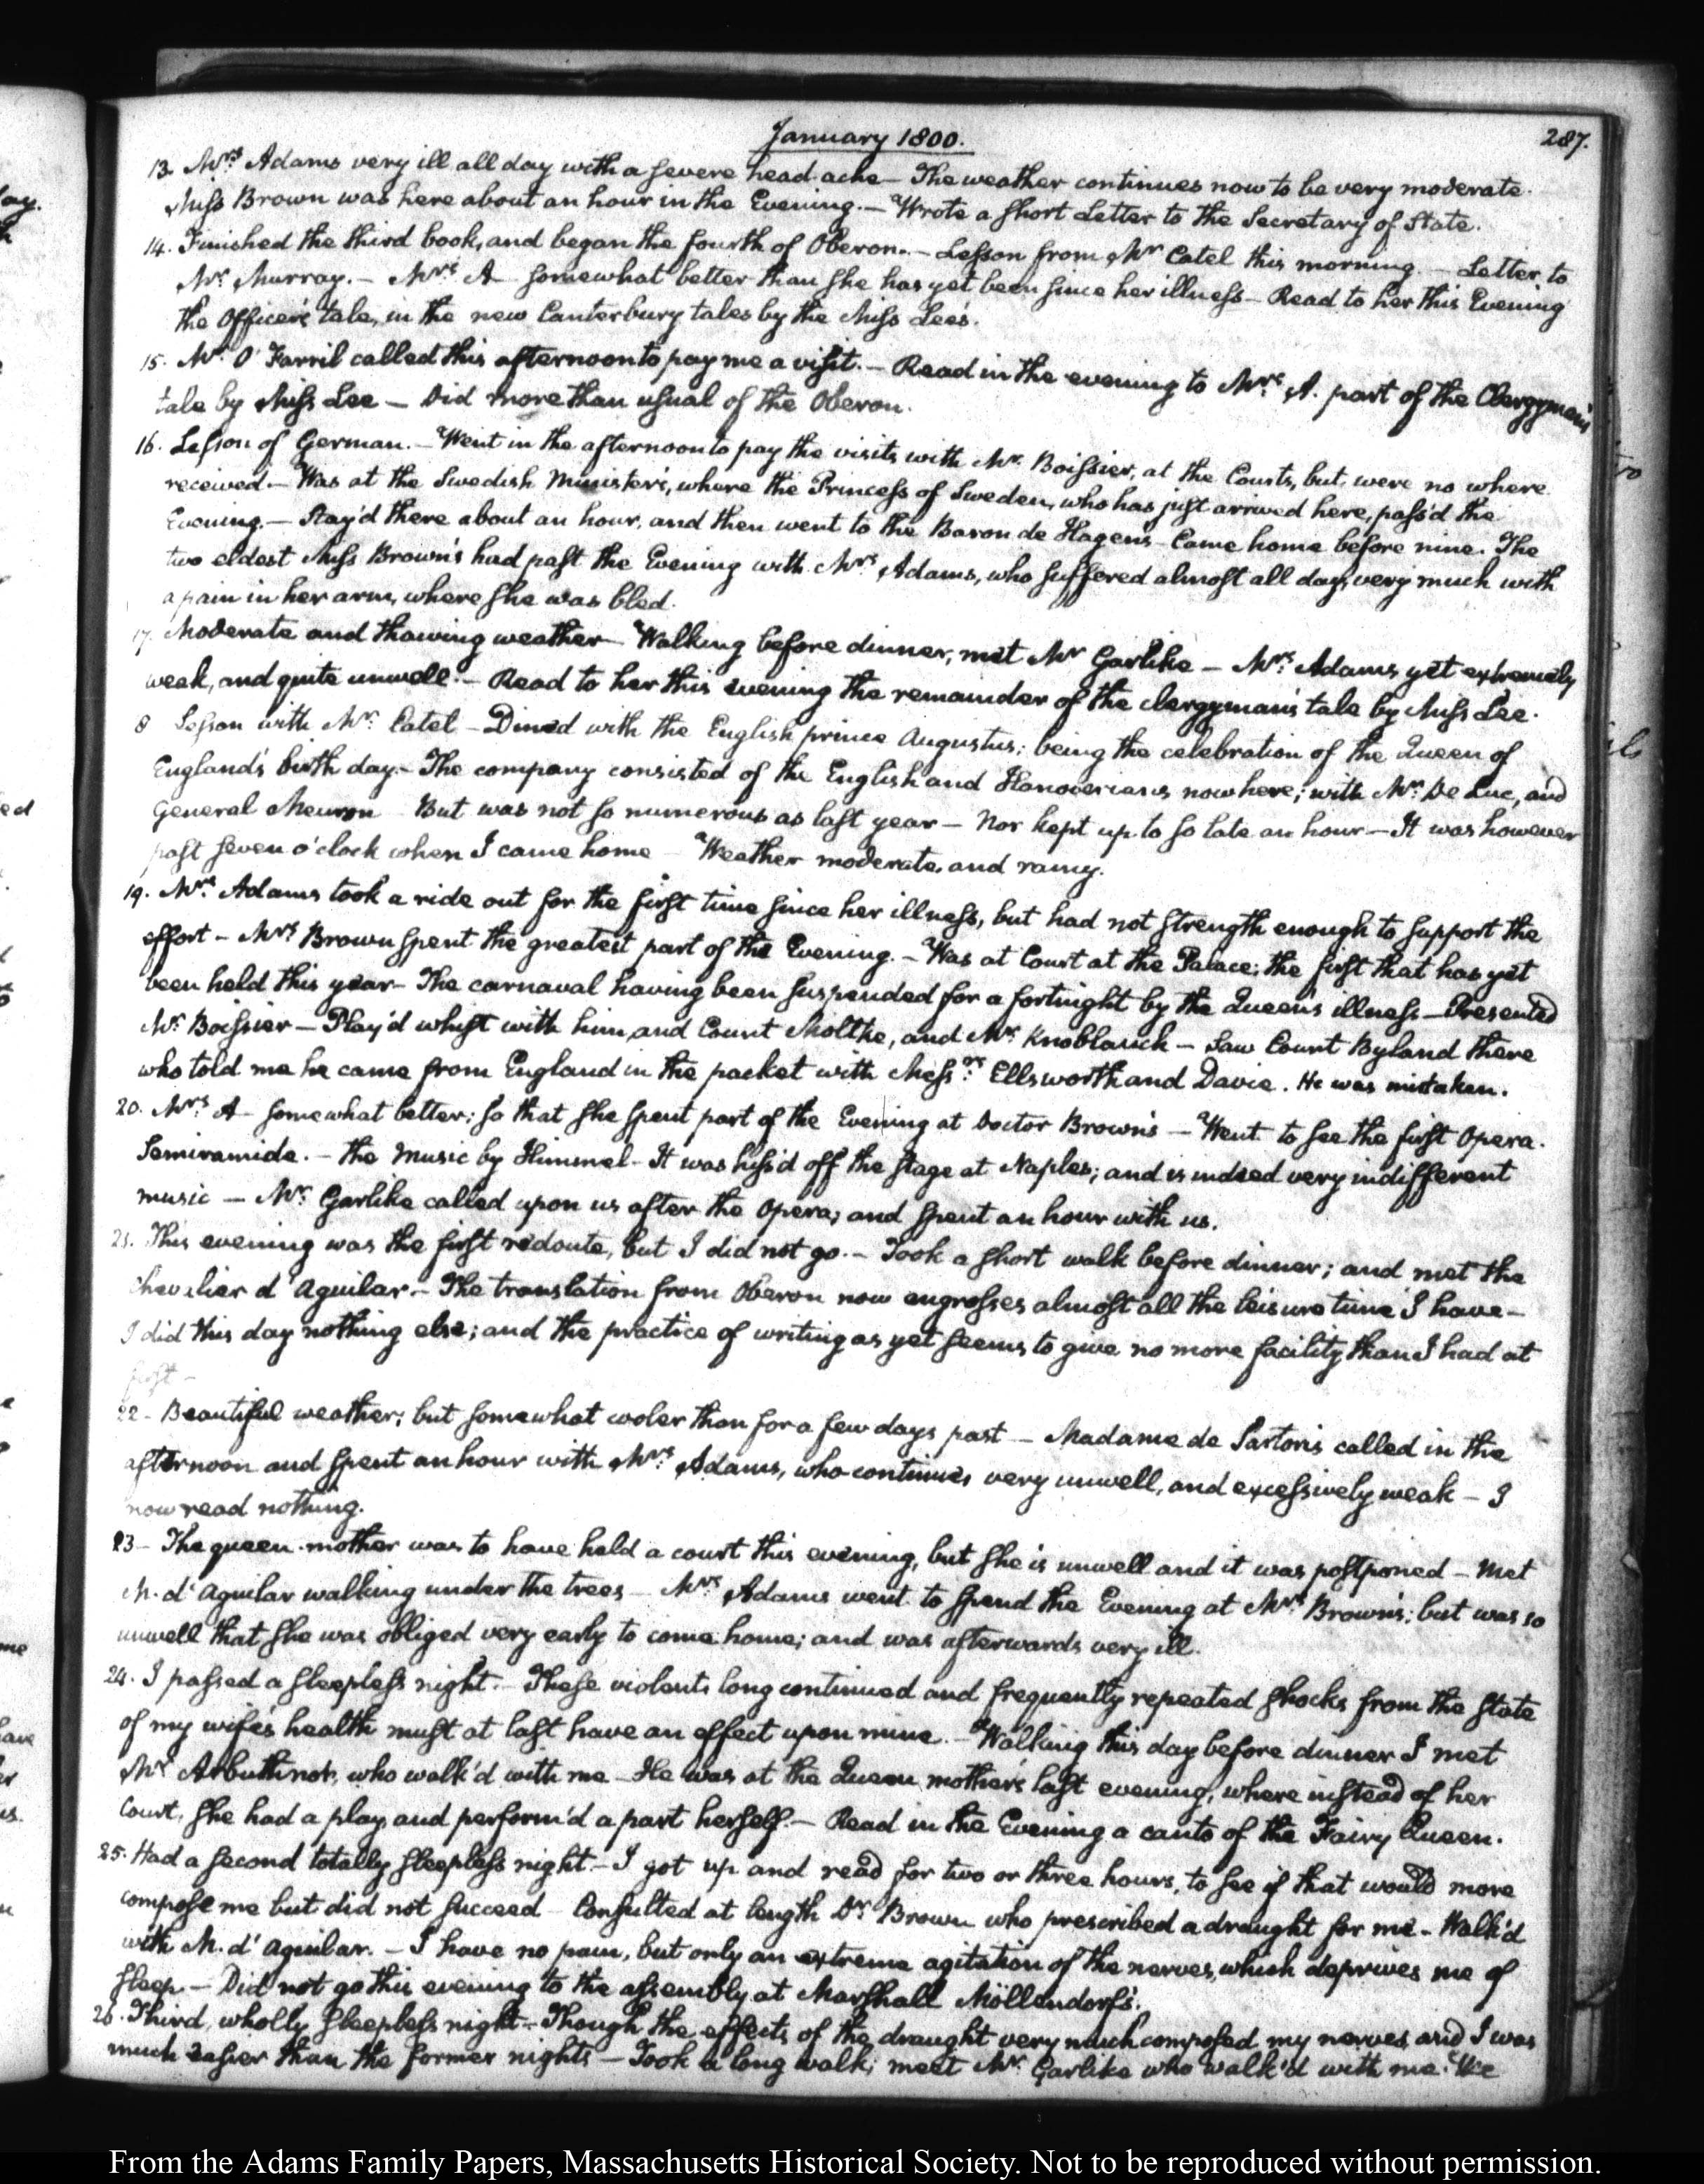 January 1800.
287.
13. Mrs. Adams very ill all day with a severe head-ache — The weather continues now to be very moderate.
Miss Brown was here about an hour in the Evening. — Wrote a short Letter to the Secretary of State.
14. Finished the third book, and began the fourth of Oberon. — Lesson from Mr Catel this morning. — Letter to
Mr. Murray. — Mrs. A somewhat better than she has yet been since her illness — Read to her this Evening
the Officer's tale, in the new Canterbury tales by the Miss Lee's.
15. Mr. O'Farril called this afternoon to pay me a visit. — Read in the evening to Mrs. A. part of the Clergyman's
tale by Miss Lee — Did more than usual of the Oberon.
16. Lesson of German. — Went in the afternoon to pay the visits with Mr. Boissier, at the Courts, but were no where
received. — Was at the Swedish Minister's, where the Princess of Sweden, who has just arrived here, pass'd the
Evening. — Stay'd there about an hour, and then went to the Baron de Hagen's — Came home before nine. The
two eldest Miss Brown's had past the Evening with Mrs. Adams, who suffered almost all day, very much with
a pain in her arm, where she was bled.
17. Moderate and thawing weather — Walking before dinner, met Mr Garlike — Mrs. Adams yet extremely
weak, and quite unwell. — Read to her this evening the remainder of the clergyman's tale by Miss Lee.
8 Lesson with Mr. Catel — Dined with the English prince Augustus; being the celebration of the Queen of
England's birth day. — The company consisted of the English and Hanoverians now here; with Mr. De Luc, and
General Meuron But was not so numerous as last year — Nor kept up to so late an hour — It was however
past seven o'clock when I came home — Weather moderate, and rainy.
19. Mrs. Adams took a ride out for the first time since her illness, but had not strength enough to support the
effort — Mrs. Brown spent the greatest part of the Evening. — Was at Court at the Palace; the first that has yet
been held this year — The carnaval having been suspended for a fortnight by the Queen's illness — Presented
Mr. Boissier — Play'd whist with him, and Count Moltke, and Mr. Knoblauch — Saw Count Byland there
who told me he came from England in the packet with Messrs. Ellsworth and Davie. He was mistaken.
20. Mrs. A — somewhat better; so that she spent part of the Evening at Doctor Brown's — Went to see the first Opera.
Semiramide. — the Music by Himmel — It was hiss'd off the stage at Naples; and is indeed very indifferent
music — Mr. Garlike called upon us after the Opera, and spent an hour with us.
21. This evening was the first redoute, but I did not go. — Took a short walk before dinner; and met the
Chevalier d'Aguilar. — The translation from Oberon now engrosses almost all the leisure time I have —
I did this day nothing else; and the practice of writing as yet seems to give no more facility than I had at
first —
22 — Beautiful weather; but somewhat cooler than for a few days past — Madame de Sartoris called in the
afternoon and spent an hour with Mrs. Adams, who continues very unwell, and excessively weak — I
now read nothing.
23 — The queen-mother was to have held a court this evening, but she is unwell and it was postponed — Met
M. d'Aguilar walking under the trees — Mrs Adams went to spend the Evening at Mrs. Brown's; but was so
unwell that she was obliged very early to come home; and was afterwards very ill.
24. I passed a sleepless night. — These violent, long continued and frequently repeated shocks from the state
of my wife's health must at last have an effect upon mine. — Walking this day before dinner I met
Mr. Arbuthnot, who walk'd with me — He was at the Queen mother's last evening, where instead of her
Court, she had a play and perform'd a part herself. — Read in the Evening a canto of the Fairy Queen.
25. Had a second totally sleepless night — I got up and read for two or three hours, to see if that would more
compose me but did not succeed — Consulted at length Dr. Brown who prescribed a draught for me — Walk'd
with M. d'Aguilar. — I have no pain, but only an extreme agitation of the nerves, which deprives me of
sleep — Did not go this evening to the assembly at Marshall Möllendorf's.
26. Third, wholly sleepless night — Though the effects of the draught very much composed my nerves and I was
much easier than the former nights — Took a long walk; meet Mr. Garlike who walk'd with me. We
From the Adams Family Papers, Massachusetts Historical Society. Not to be reproduced without permission.